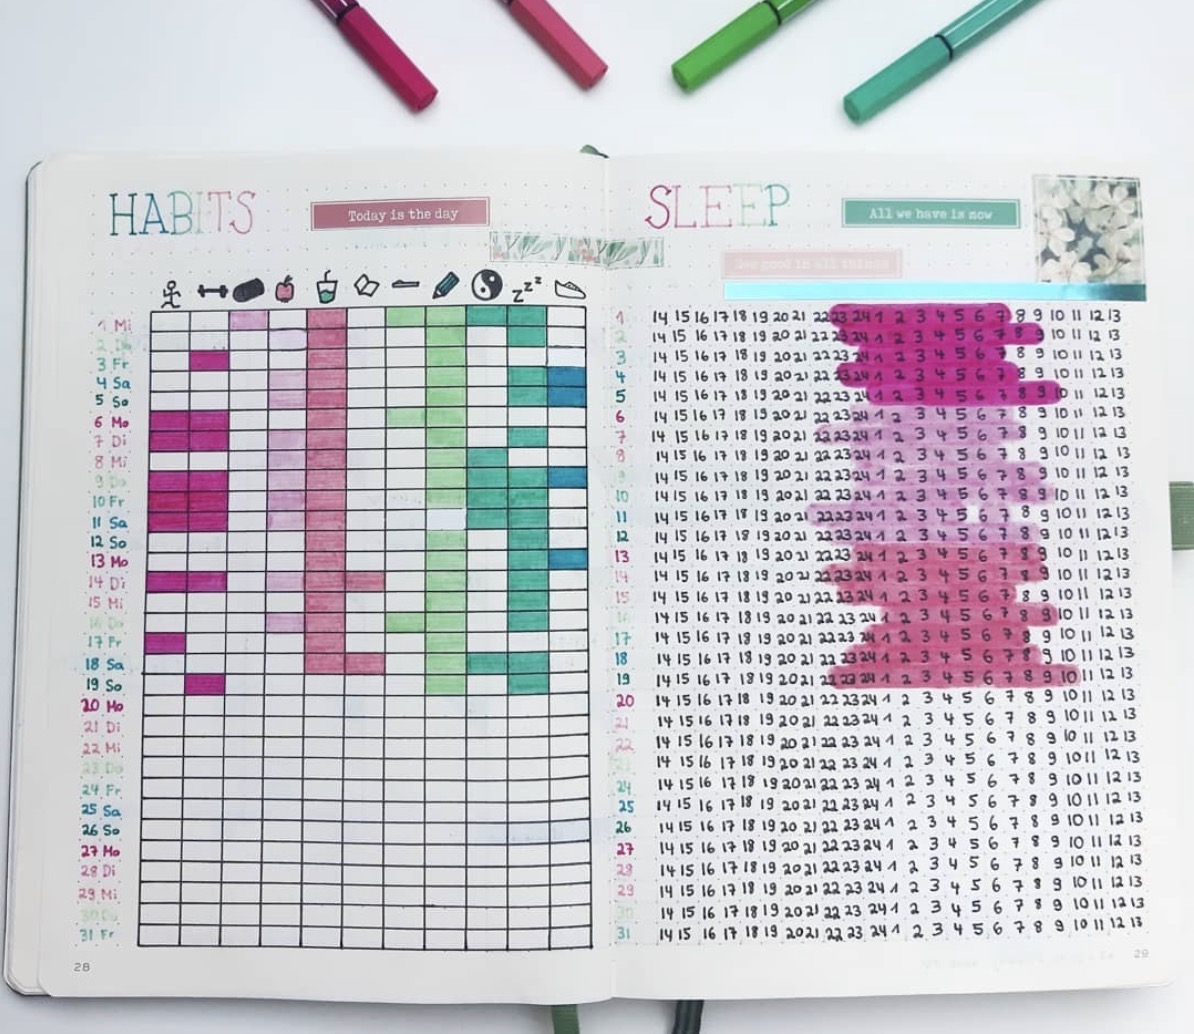 HABITS
Today is the day
zzz
1 Mi
2 Do
3 Fr
4 Sa
5 So
6 Mo
7 Di
8 Mi
9 Do
10 Fr
11 Sa
12 So
13 Mo
14 Di
15 Mi
16 Do
17 Fr
18 Sa
19 So
20 Mo
21 Di
22 Mi
23 Do
24 Fr
25 Sa
26 So
27 Mo
28 Di
29 Mi
30 Do
31 Fr
28
SLEEP
All we have is now
See good in all things
1 14 15 16 17 18 19 20 21 22 23 24 1 2 3 4 5 6 7 8 9 10 11 12 13
2 14 15 16 17 18 19 20 21 22 23 24 1 2 3 4 5 6 7 8 9 10 11 12 13
3 14 15 16 17 18 19 20 21 22 23 24 1 2 3 4 5 6 7 8 9 10 11 12 13
4 14 15 16 17 18 19 20 21 22 23 24 1 2 3 4 5 6 7 8 9 10 11 12 13
5 14 15 16 17 18 19 20 21 22 23 24 1 2 3 4 5 6 7 8 9 10 11 12 13
6 14 15 16 17 18 19 20 21 22 23 24 1 2 3 4 5 6 7 8 9 10 11 12 13
7 14 15 16 17 18 19 20 21 22 23 24 1 2 3 4 5 6 7 8 9 10 11 12 13
8 14 15 16 17 18 19 20 21 22 23 24 1 2 3 4 5 6 7 8 9 10 11 12 13
9 14 15 16 17 18 19 20 21 22 23 24 1 2 3 4 5 6 7 8 9 10 11 12 13
10 14 15 16 17 18 19 20 21 22 23 24 1 2 3 4 5 6 7 8 9 10 11 12 13
11 14 15 16 17 18 19 20 21 22 23 24 1 2 3 4 5 6 7 8 9 10 11 12 13
12 14 15 16 17 18 19 20 21 22 23 24 1 2 3 4 5 6 7 8 9 10 11 12 13
13 14 15 16 17 18 19 20 21 22 23 24 1 2 3 4 5 6 7 8 9 10 11 12 13
14 14 15 16 17 18 19 20 21 22 23 24 1 2 3 4 5 6 7 8 9 10 11 12 13
15 14 15 16 17 18 19 20 21 22 23 24 1 2 3 4 5 6 7 8 9 10 11 12 13
16 14 15 16 17 18 19 20 21 22 23 24 1 2 3 4 5 6 7 8 9 10 11 12 13
17 14 15 16 17 18 19 20 21 22 23 24 1 2 3 4 5 6 7 8 9 10 11 12 13
18 14 15 16 17 18 19 20 21 22 23 24 1 2 3 4 5 6 7 8 9 10 11 12 13
19 14 15 16 17 18 19 20 21 22 23 24 1 2 3 4 5 6 7 8 9 10 11 12 13
20 14 15 16 17 18 19 20 21 22 23 24 1 2 3 4 5 6 7 8 9 10 11 12 13
21 14 15 16 17 18 19 20 21 22 23 24 1 2 3 4 5 6 7 8 9 10 11 12 13
22 14 15 16 17 18 19 20 21 22 23 24 1 2 3 4 5 6 7 8 9 10 11 12 13
23 14 15 16 17 18 19 20 21 22 23 24 1 2 3 4 5 6 7 8 9 10 11 12 13
24 14 15 16 17 18 19 20 21 22 23 24 1 2 3 4 5 6 7 8 9 10 11 12 13
25 14 15 16 17 18 19 20 21 22 23 24 1 2 3 4 5 6 7 8 9 10 11 12 13
26 14 15 16 17 18 19 20 21 22 23 24 1 2 3 4 5 6 7 8 9 10 11 12 13
27 14 15 16 17 18 19 20 21 22 23 24 1 2 3 4 5 6 7 8 9 10 11 12 13
28 14 15 16 17 18 19 20 21 22 23 24 1 2 3 4 5 6 7 8 9 10 11 12 13
29 14 15 16 17 18 19 20 21 22 23 24 1 2 3 4 5 6 7 8 9 10 11 12 13
30 14 15 16 17 18 19 20 21 22 23 24 1 2 3 4 5 6 7 8 9 10 11 12 13
31 14 15 16 17 18 19 20 21 22 23 24 1 2 3 4 5 6 7 8 9 10 11 12 13
29